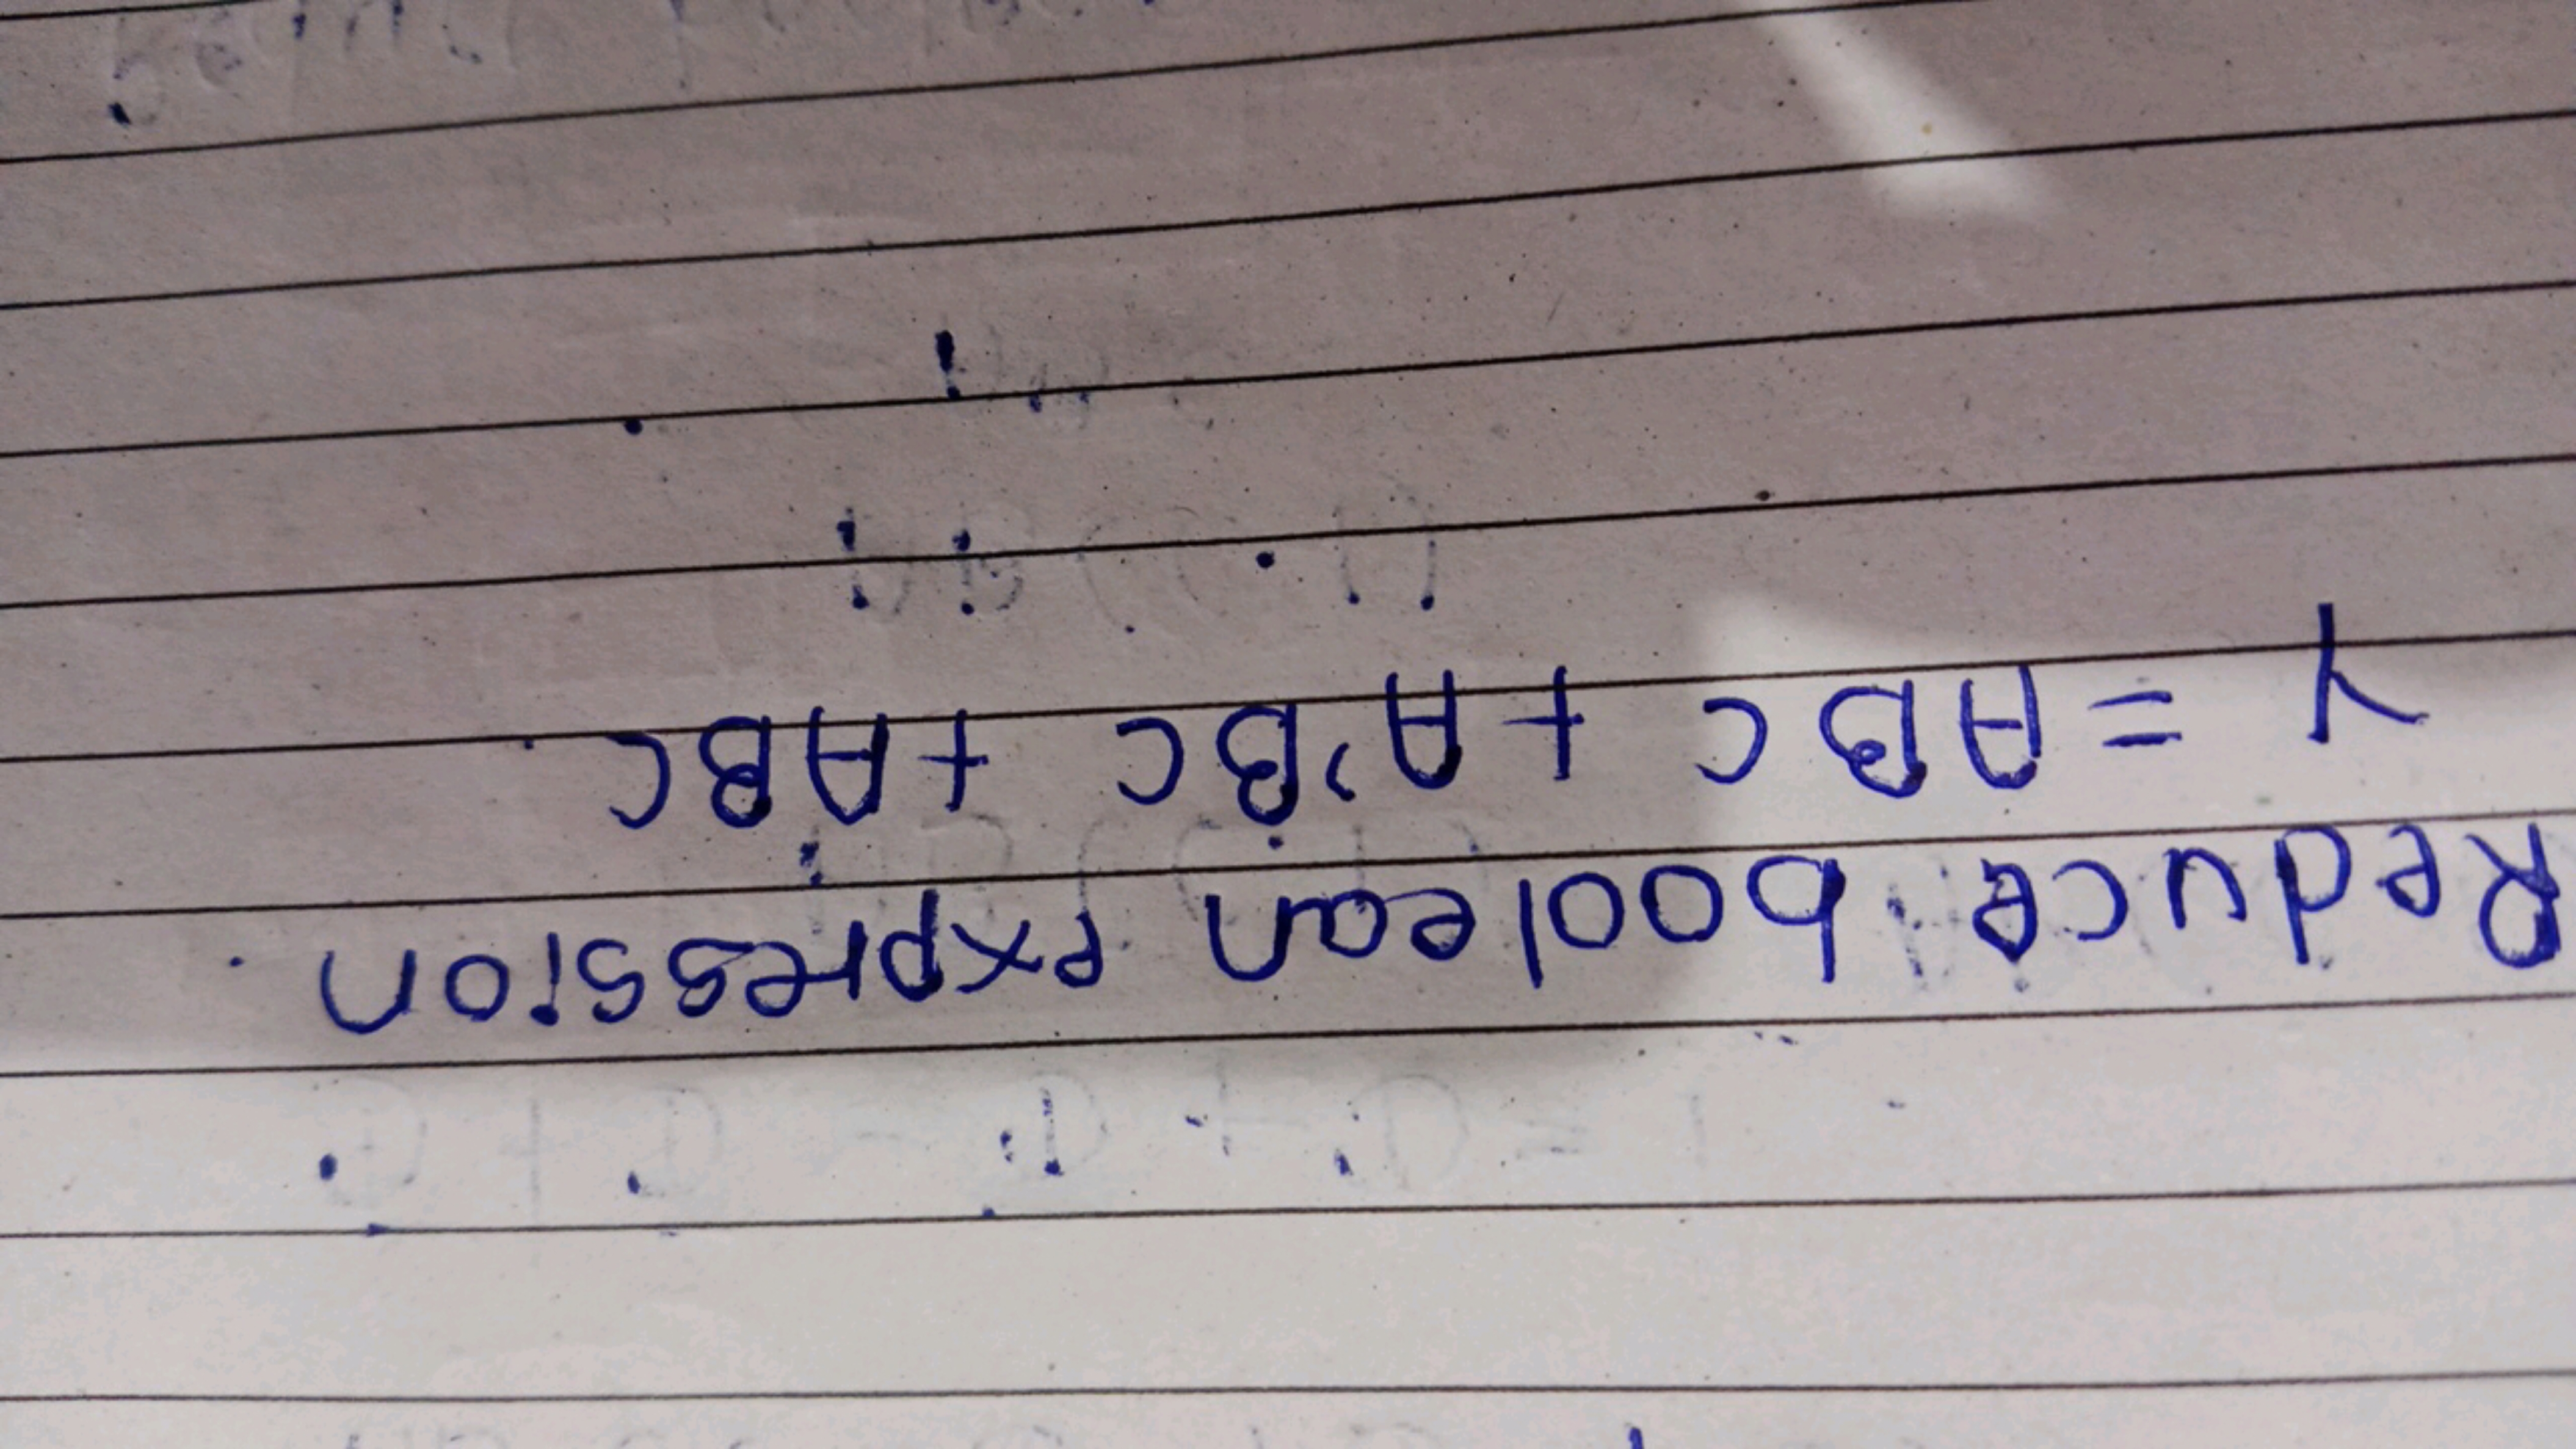 Reduce boolean expression
Y = ABC + A'BC + ABC